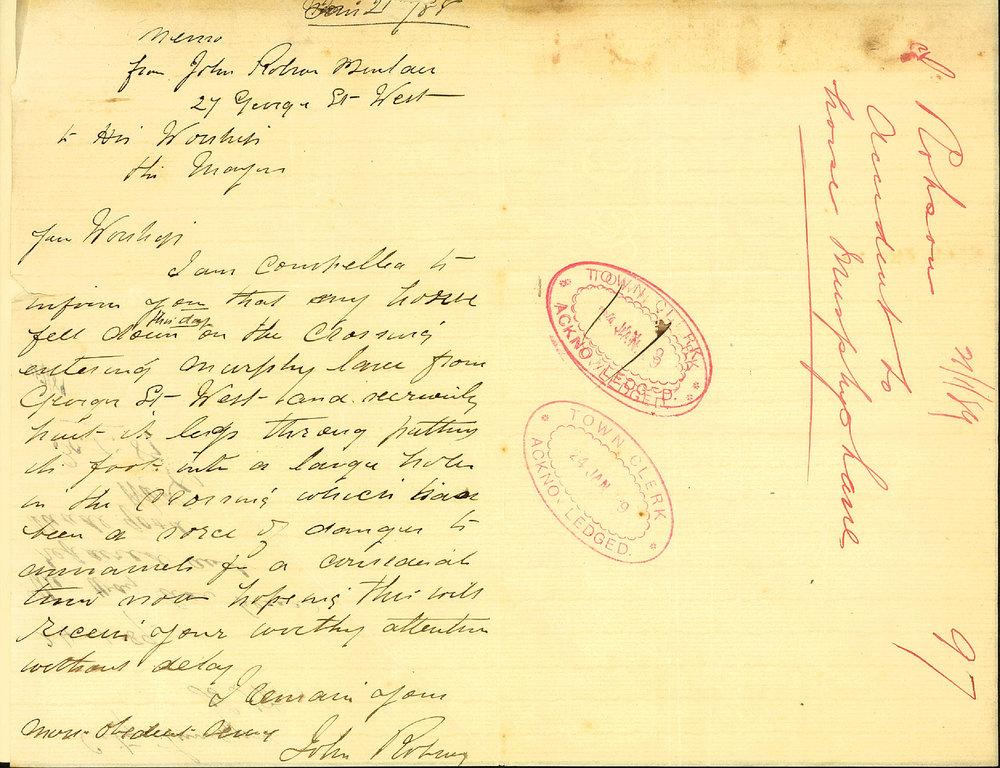 Jan 21 / 88
Memo
from John Robson
27 George St West
to His Worship
the Mayor
Your Worship
I am compelled to
inform you that my horse
this day
fell down on the Crossing
entering Murphy lane from
George St West and
hurt its legs through putting
its foot into a large hole
in the Crossing which has
been a sorce of danger to
for a
time now hoping this will
receive your worthy attention
without delay
I remain your
most obedient
John Robson
J. Robson
Accident to
horse Murphys Lane
24/1/89
97
TOWN CLERK
24 JAN 89
ACKNOWLEDGED.
TOWN CLERK
24 JAN 9
ACKNOWLEDGED.